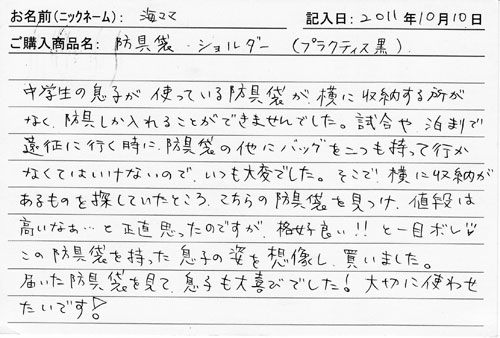 お名前(ニックネーム): 海ママ 記入日: 2011年10月10日
ご購入商品名: 防具袋・ショルダー (プラクティス黒)
中学生の息子が使っている防具袋が、横に収納する所が
なく、防具しか入れることができませんでした。試合や泊まりで
遠征に行く時に、防具袋の他にバッグを二つも持って行か
なくてはいけないので、いつも大変でした。そこで横に収納が
あるものを探していたところ、こちらの防具袋を見つけ、値段は
高いなぁ…と正直思ったのですが、格好良い!!と一目ボレ♡
この防具袋を持った息子の姿を想像し、買いました。
届いた防具袋を見て、息子も大喜びでした!大切に使わせ
たいです!